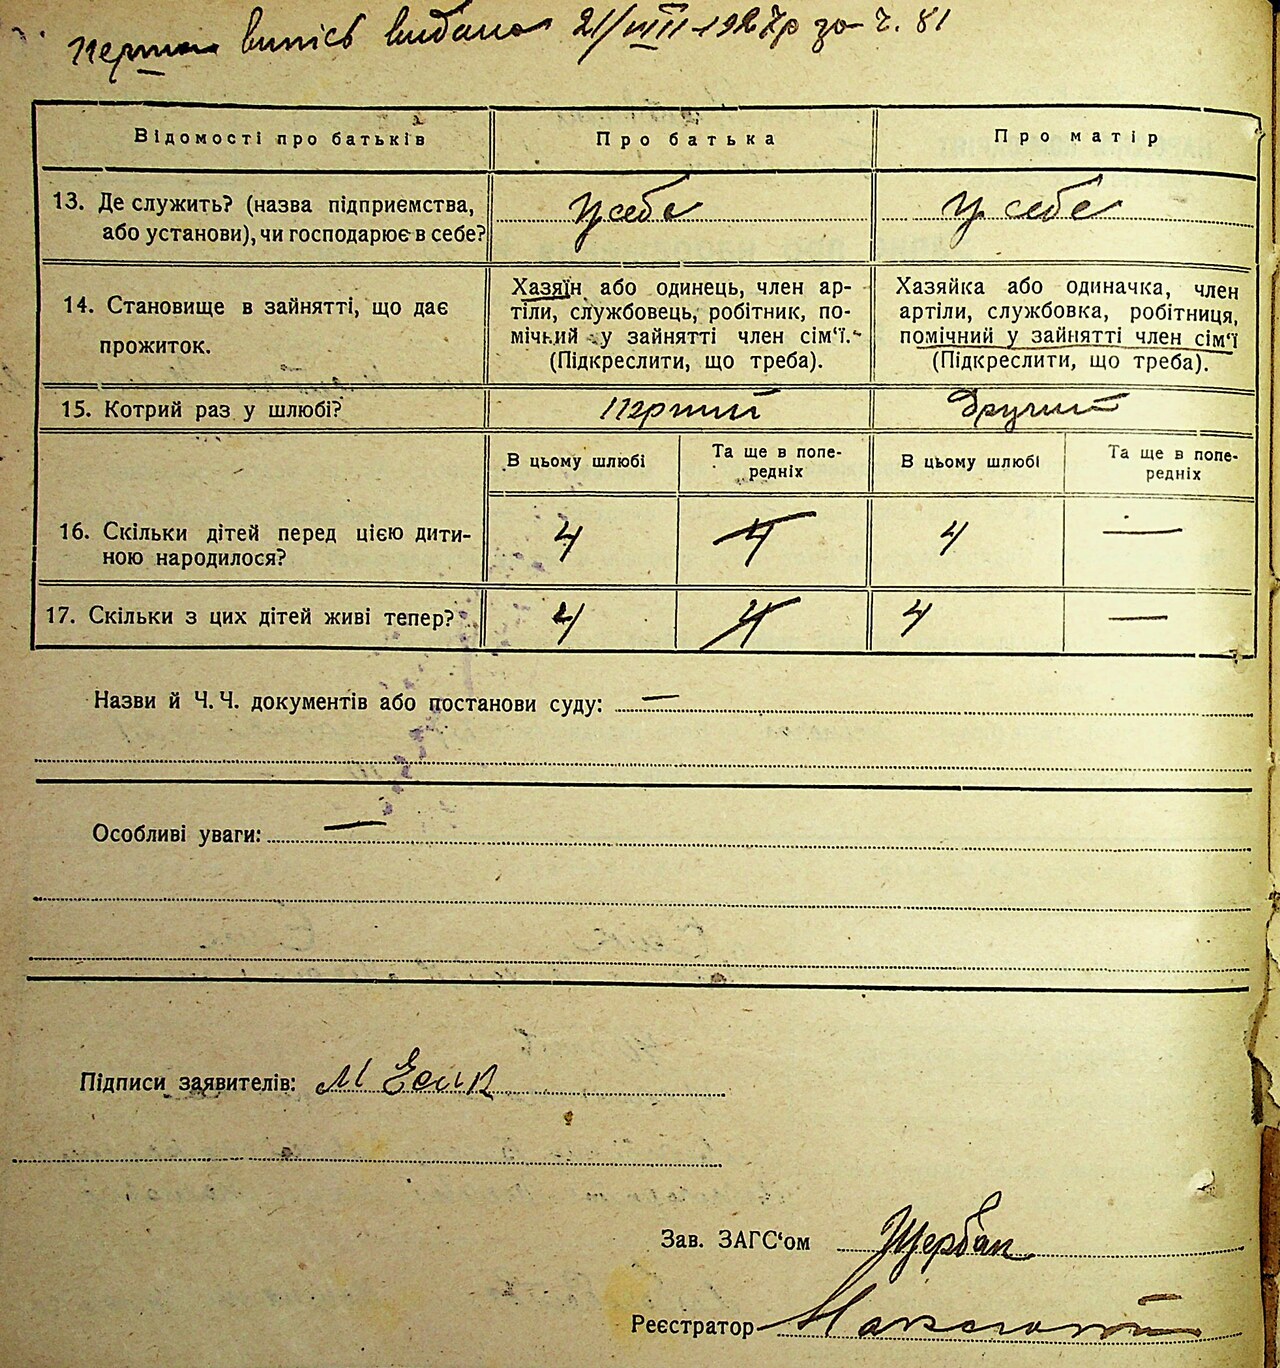 Перша випісь видана 21/VIII-1927р за ч. 81
Відомості про батьків
Про батька
Про матір
13. Де служить? (назва підприємства,
або установи), чи господарює в себе?
У себе
У себе
14. Становище в зайнятті, що дає
прожиток.
Хазяїн або одинець, член ар-
тіли, службовець, робітник, по-
мічний у зайнятті член сім'ї.
(Підкреслити, що треба).
Хазяйка або одиначка, член
артіли, службовка, робітниця,
помічний у зайнятті член сім'ї
(Підкреслити, що треба).
15. Котрий раз у шлюбі?
Перший
Другий
В цьому шлюбі
Та ще в попе-
редніх
В цьому шлюбі
Та ще в попе-
редніх
16. Скільки дітей перед цією дити-
ною народилося?
4
4
4
—
17. Скільки з цих дітей живі тепер?
4
4
4
—
Назви й Ч. Ч. документів або постанови суду: —
Особливі уваги: —
Підписи заявителів: М Есик
Зав. ЗАГС'ом Щербак
Реєстратор